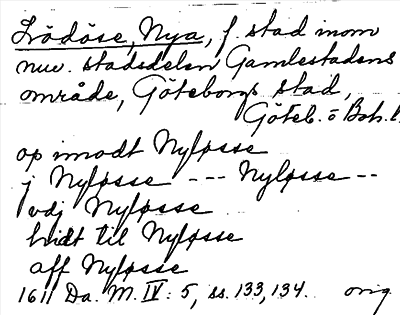 Lödöse, Nya, f. stad inom
nuv. stadsdelen Gamlestadens
område, Göteborgs stad,
Göteb. o Boh. l.
op imodt Nyløsse
j Nyløsse --- Nyløsse --
vdj Nyløsse
hidt til Nyløsse
aff Nyløsse
1611 Da. M. IV: 5, ss. 133, 134. orig.